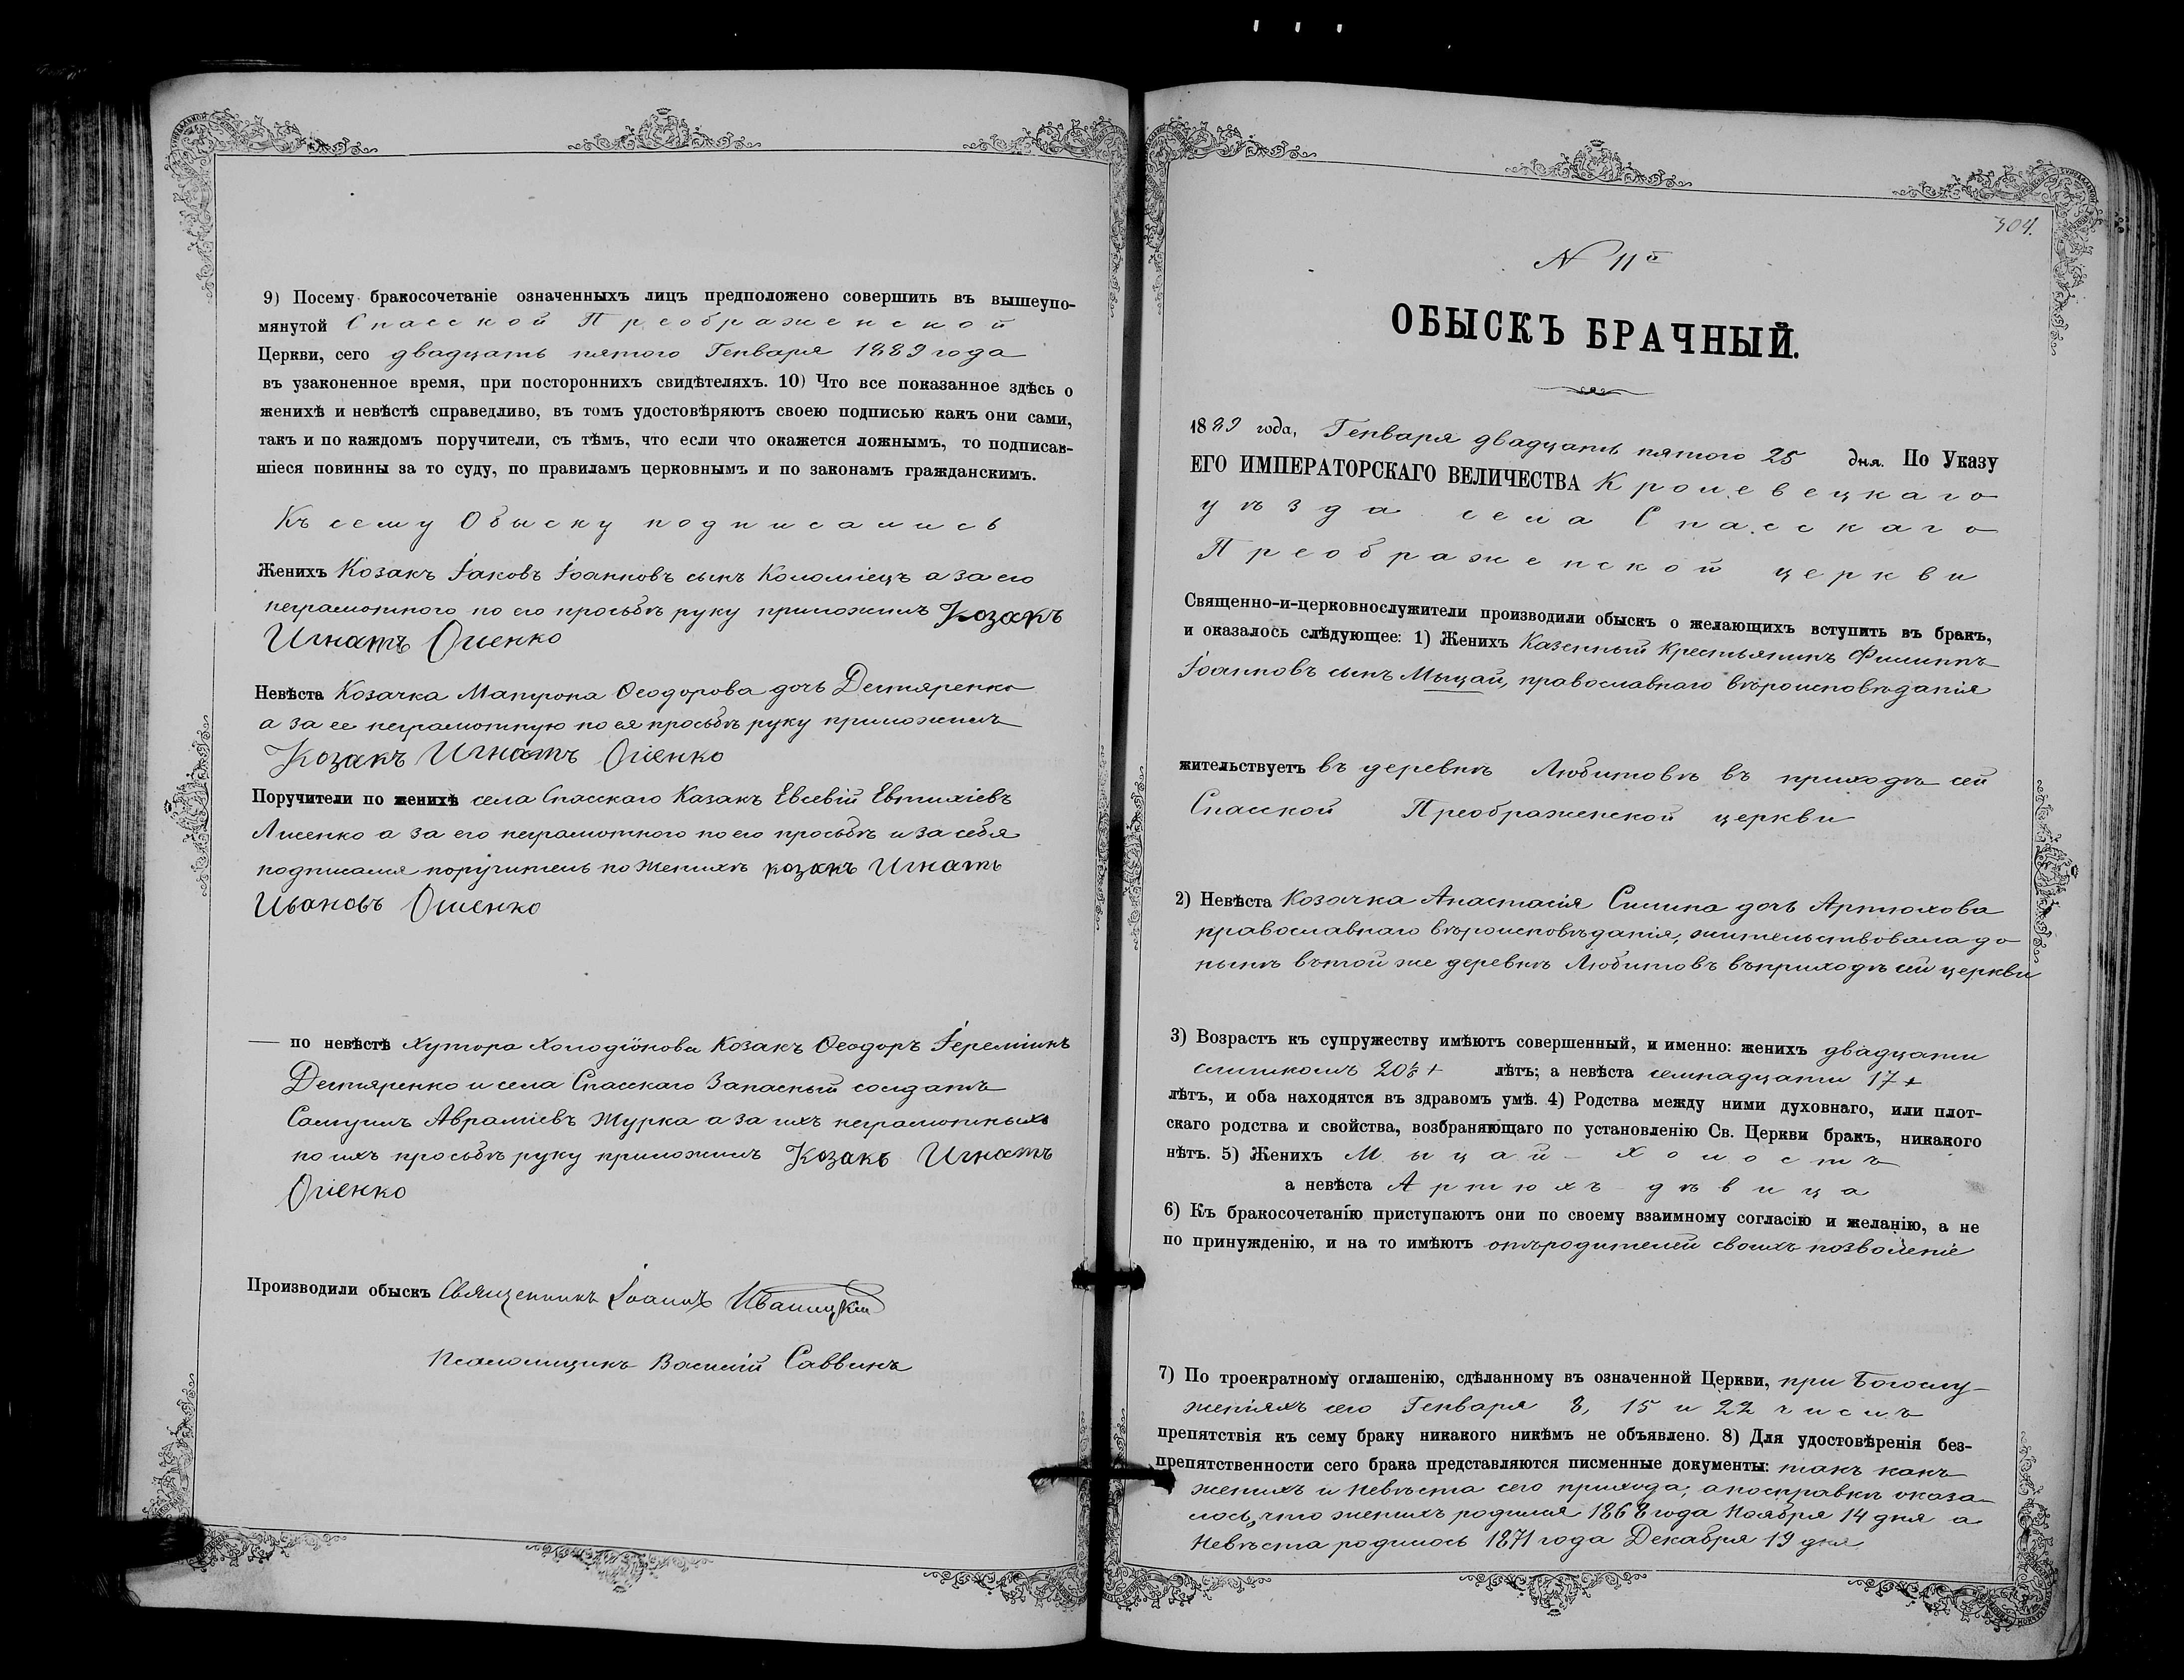 9) Посему бракосочетаніе означенныхъ лицъ предположено совершить въ вышеупо-
мянутой Спасской Преображенской
Церкви, сего двадцать пятого Генваря 1889 года
въ узаконенное время, при постороннихъ свидѣтеляхъ. 10) Что все показанное здѣсь о
женихѣ и невѣстѣ справедливо, въ томъ удостовѣряютъ своею подписью какъ они сами,
такъ и по каждомъ поручители, съ тѣмъ, что если что окажется ложнымъ, то подписав-
шіеся повинны за то суду, по правиламъ церковнымъ и по законамъ гражданскимъ.
Къ сему Обыску подписались
Женихъ Козакъ Іаковъ Іоанновъ сынъ Коломіецъ а за его
неграмотного по его просьбѣ руку приложилъ Козакъ
Игнатъ Огіенко
Невѣста Козачка Матрона Ѳеодорова дочь Дегтяренко
а за ее неграмотную по ея просьбѣ руку приложилъ
Козакъ Игнатъ Огіенко
Поручители по женихѣ села Спасскаго Казакъ Евсевій Евтихіевъ
Лисенко а за его неграмотного по его просьбѣ и за себя
подписался поручитель по женихѣ козакъ Игнатъ
Ивановъ Огіенко
— по невѣстѣ Хутора Козакъ Ѳеодоръ Іереміинъ
Дегтяренко и села Спасскаго Запасный солдатъ
Самуилъ Авраміевъ Журка а за ихъ неграмотныхъ
по ихъ просьбѣ руку приложилъ Козакъ Игнатъ
Огіенко
Производили обыскъ Священникъ Іоаннъ Иваницкій
Псаломщикъ Василій Саввинъ
304.
N 11й
ОБЫСКЪ БРАЧНЫЙ.
1889 года, Генваря двадцать пятого 25 дня. По Указу
ЕГО ИМПЕРАТОРСКАГО ВЕЛИЧЕСТВА Кролевецкаго
уѣзда села Спасскаго
Преображенской церкви
Священно-и-церковнослужители производили обыскъ о желающихъ вступить въ бракъ,
и оказалось слѣдующее: 1) Женихъ Казенный Крестьянинъ Филиппъ
Іоанновъ сынъ Мыцай, православнаго вѣроисповѣданія
жительствуетъ въ деревнѣ Любитовѣ въ приходѣ сей
Спасской Преображенской церкви
2) Невѣста Козачка Анастасія Силина дочь Артюхова
православнаго вѣроисповѣданія, жительствовала до
нынѣ въ той же деревнѣ Любитовѣ въ приходѣ сей церкви
3) Возрастъ къ супружеству имѣютъ совершенный, и именно: женихъ двадцати
слишкомъ лѣтъ; а невѣста семнадцати 17 +
лѣтъ, и оба находятся въ здравомъ умѣ. 4) Родства между ними духовнаго, или плот-
скаго родства и свойства, возбраняющаго по установленію Св. Церкви бракъ, никакого
нѣтъ. 5) Женихъ Мыцай - холостъ
а невѣста Артюхъ - дѣвица
6) Къ бракосочетанію приступаютъ они по своему взаимному согласію и желанію, а не
по принужденію, и на то имѣютъ отъ родителей своихъ позволеніе
7) По троекратному оглашенію, сдѣланному въ означенной Церкви, при Богослу-
женіяхъ сего Генваря 8, 15 и 22 числъ
препятствія къ сему браку никакого никѣмъ не объявлено. 8) Для удостовѣренія без-
препятственности сего брака представляются писменные документы: такъ какъ
женихъ и невѣста сего прихода, а по справкѣ оказа-
лось, что женихъ родился 1868 года Ноября 14 дня а
Невѣста родилось 1871 года Декабря 19 дня.